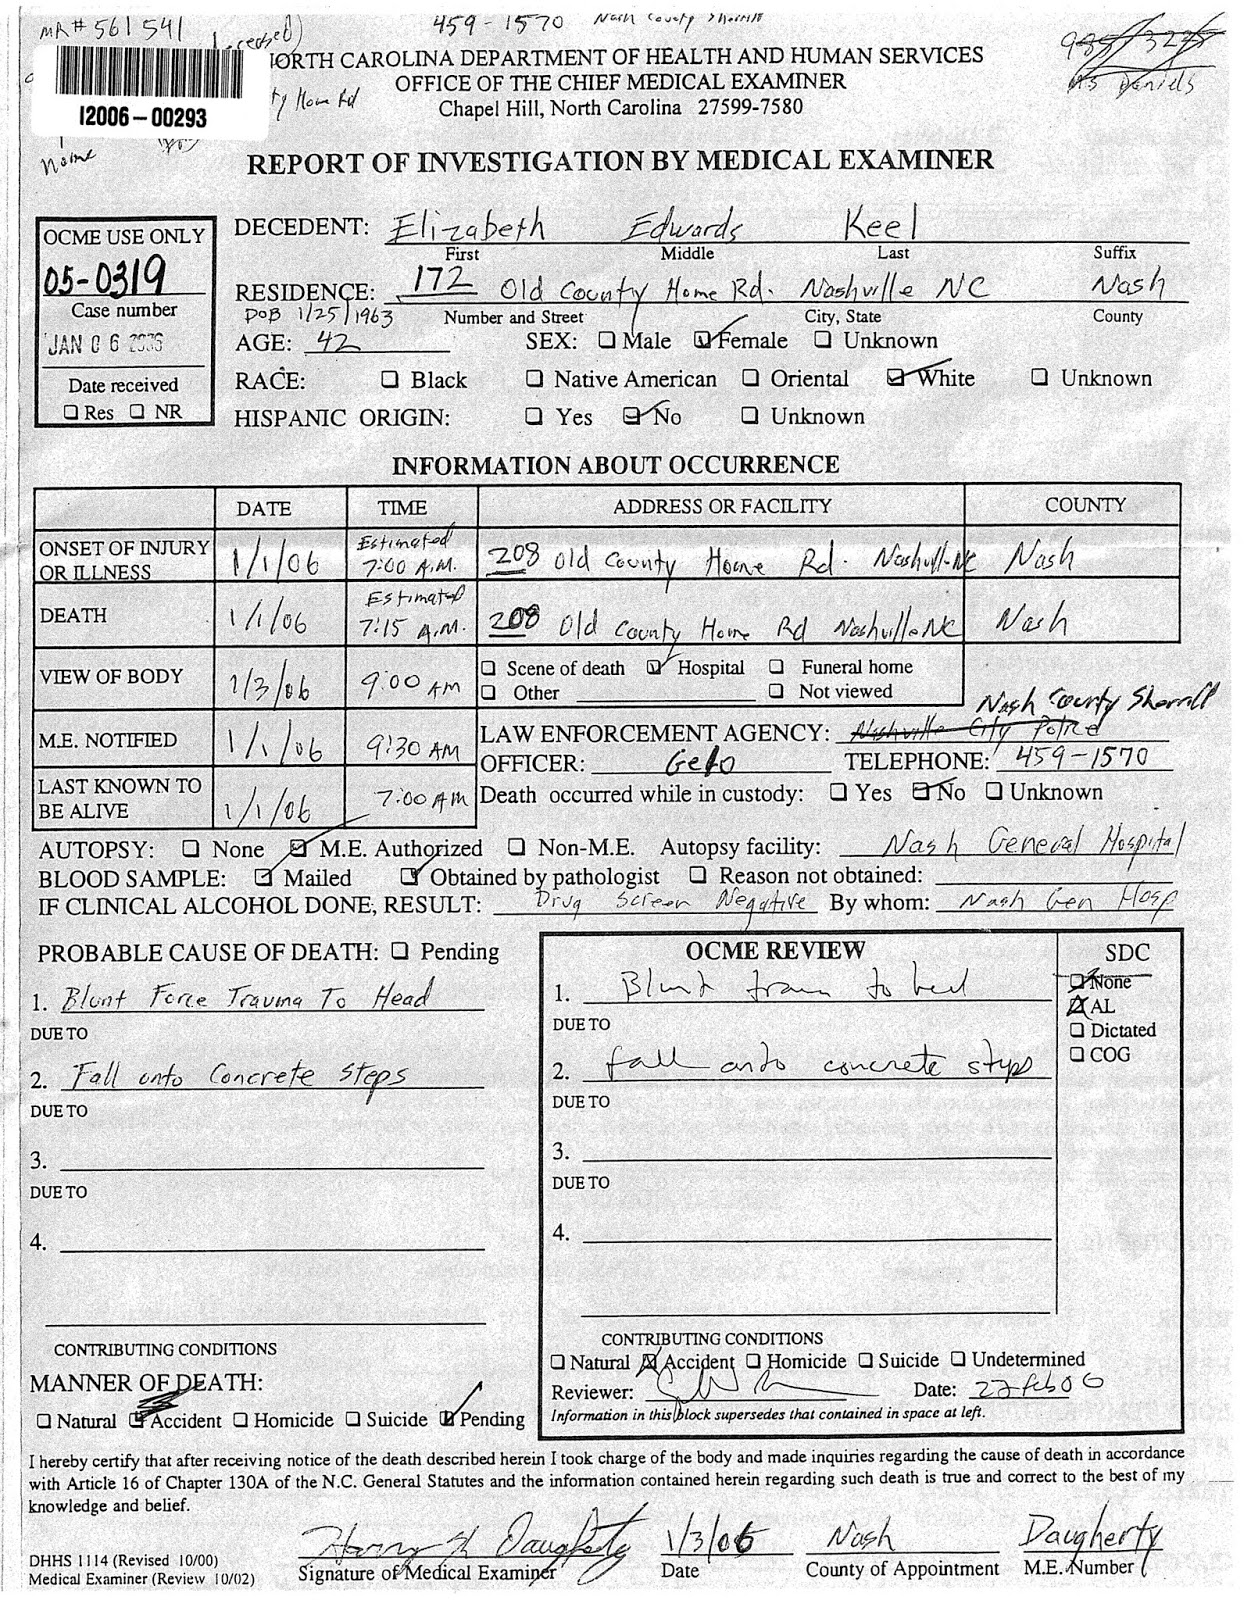 MR# 561 541 459-1570 Nash County Sherriff
NORTH CAROLINA DEPARTMENT OF HEALTH AND HUMAN SERVICES
OFFICE OF THE CHIEF MEDICAL EXAMINER
Chapel Hill, North Carolina 27599-7580
I2006-00293
Home
REPORT OF INVESTIGATION BY MEDICAL EXAMINER
OCME USE ONLY
05-0319
Case number
JAN 06 2006
Date received
☐ Res ☐ NR
DECEDENT: Elizabeth Edwards Keel
First Middle Last Suffix
RESIDENCE: 172 Old County Home Rd. Nashville NC Nash
DOB 1/25/1963 Number and Street City, State County
AGE: 42 SEX: ☐ Male ☑ Female ☐ Unknown
RACE: ☐ Black ☐ Native American ☐ Oriental ☑ White ☐ Unknown
HISPANIC ORIGIN: ☐ Yes ☑ No ☐ Unknown
INFORMATION ABOUT OCCURRENCE
DATE TIME ADDRESS OR FACILITY COUNTY
ONSET OF INJURY OR ILLNESS 1/1/06 Estimated 7:00 A.M. 208 Old County Home Rd. Nashville NC Nash
DEATH 1/1/06 Estimated 7:15 A.M. 208 Old County Home Rd Nashville NC Nash
VIEW OF BODY 1/3/06 9:00 AM ☐ Scene of death ☑ Hospital ☐ Funeral home
☐ Other ☐ Not viewed
M.E. NOTIFIED 1/1/06 9:30 AM
LAW ENFORCEMENT AGENCY: Nashville City Police Nash County Sherriff
OFFICER: TELEPHONE: 459-1570
LAST KNOWN TO BE ALIVE 1/1/06 7:00 AM
Death occurred while in custody: ☐ Yes ☑ No ☐ Unknown
AUTOPSY: ☐ None ☑ M.E. Authorized ☐ Non-M.E. Autopsy facility: Nash General Hospital
BLOOD SAMPLE: ☑ Mailed ☑ Obtained by pathologist ☐ Reason not obtained:
IF CLINICAL ALCOHOL DONE, RESULT: Drug Screen Negative By whom: Nash Gen Hosp
PROBABLE CAUSE OF DEATH: ☐ Pending
1. Blunt Force Trauma To Head
DUE TO
2. Fall onto Concrete Steps
DUE TO
3.
DUE TO
4.
CONTRIBUTING CONDITIONS
MANNER OF DEATH:
☐ Natural ☑ Accident ☐ Homicide ☐ Suicide ☑ Pending
OCME REVIEW
1. Blunt trauma to head
DUE TO
2. fall onto concrete steps
DUE TO
3.
DUE TO
4.
SDC
☐ None
☒ AL
☐ Dictated
☐ COG
CONTRIBUTING CONDITIONS
☐ Natural ☒ Accident ☐ Homicide ☐ Suicide ☐ Undetermined
Reviewer: Date: 22 feb 06
Information in this block supersedes that contained in space at left.
I hereby certify that after receiving notice of the death described herein I took charge of the body and made inquiries regarding the cause of death in accordance
with Article 16 of Chapter 130A of the N.C. General Statutes and the information contained herein regarding such death is true and correct to the best of my
knowledge and belief.
Daugherty 1/3/06 Nash Daugherty
DHHS 1114 (Revised 10/00)
Signature of Medical Examiner Date County of Appointment M.E. Number
Medical Examiner (Review 10/02)